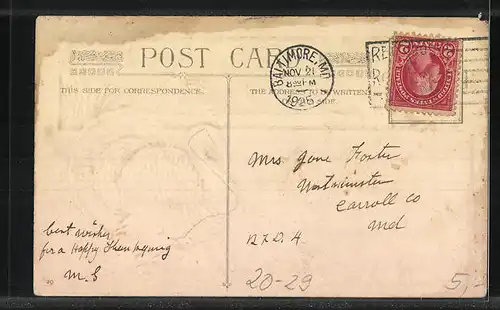 POST CARD
BALTIMORE, MD.
NOV 21
8 PM
THIS SIDE FOR CORRESPONDENCE.
THE ADDRESS TO BE WRITTEN
SIDE.
Mrs Jane Foster
Westminster
Carroll Co
Md
R F D. 4
best wishes
for a Happy Thanksgiving
M. E
20-29
5,-